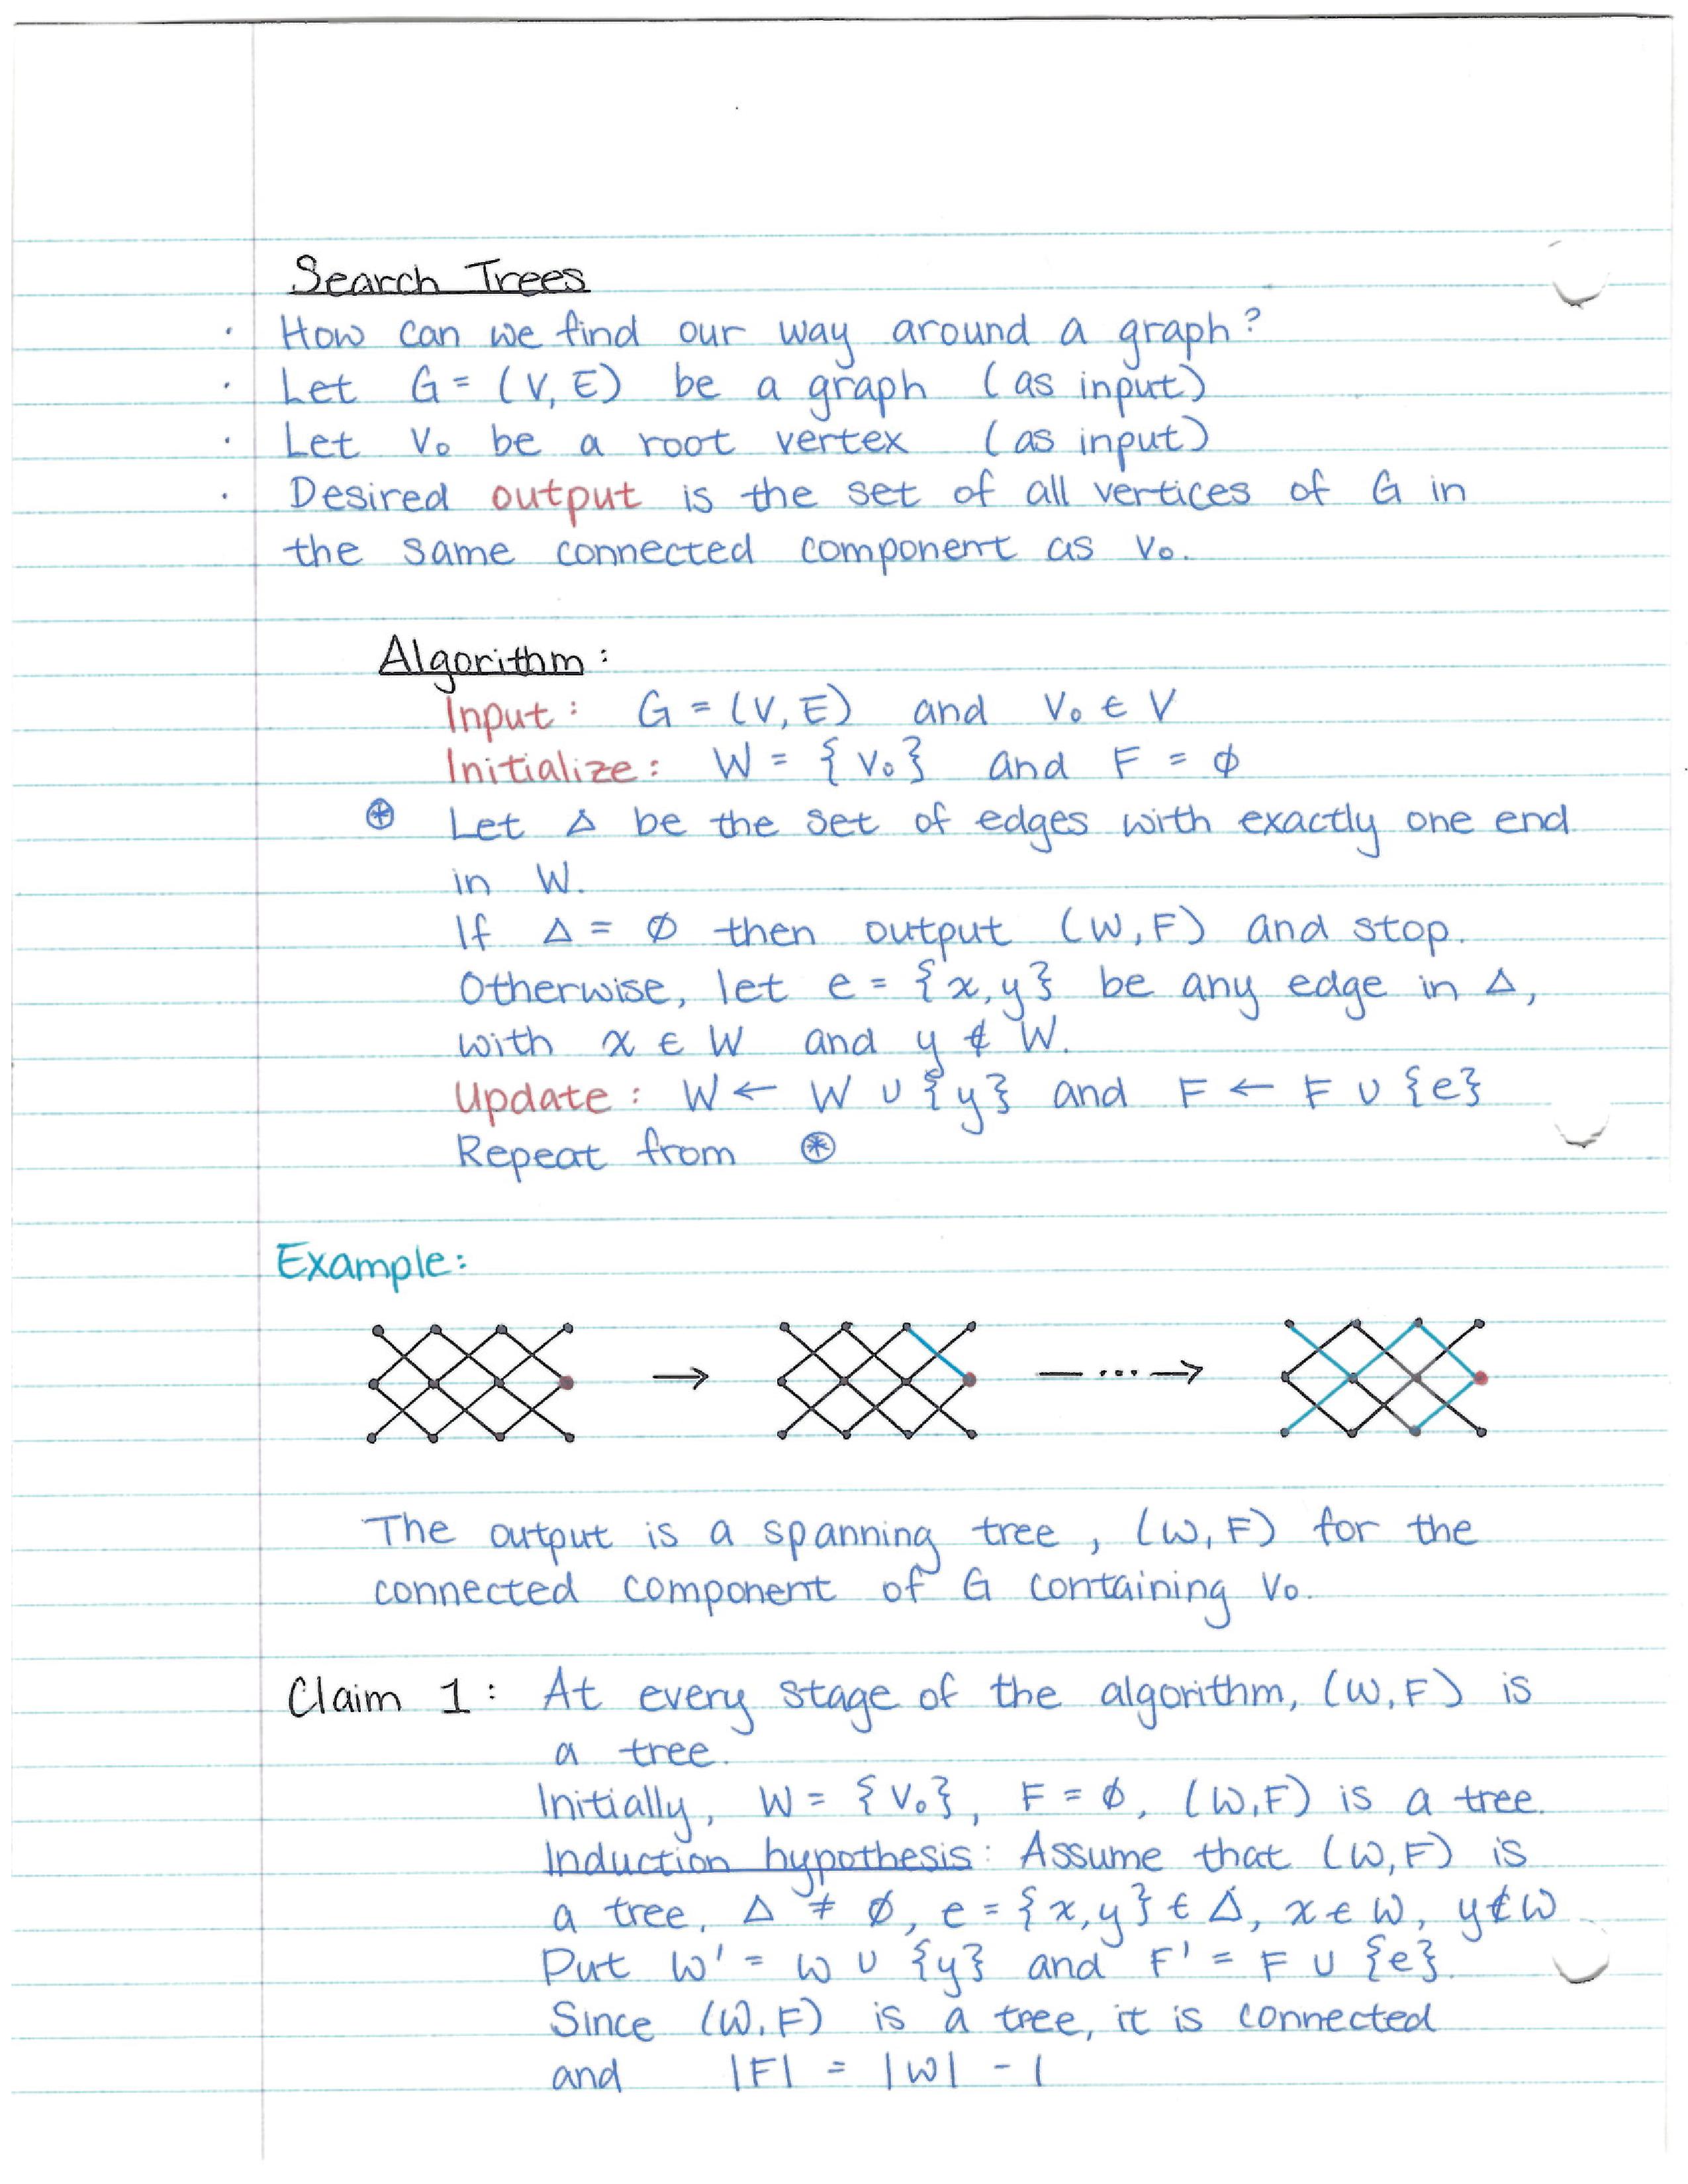 Search Trees
· How can we find our way around a graph?
· Let G = (V, E) be a graph (as input)
· Let v₀ be a root vertex (as input)
· Desired output is the set of all vertices of G in
the same connected component as v₀.
Algorithm:
Input: G = (V, E) and v₀ ∈ V
Initialize: W = {v₀} and F = ∅
⊛ Let Δ be the set of edges with exactly one end
in W.
If Δ = ∅ then output (W, F) and stop.
Otherwise, let e = {x, y} be any edge in Δ,
with x ∈ W and y ∉ W.
Update: W ← W ∪ {y} and F ← F ∪ {e}
Repeat from ⊛
Example:
→ — ... →
The output is a spanning tree, (W, F) for the
connected component of G containing v₀.
Claim 1: At every stage of the algorithm, (W, F) is
a tree.
Initially, W = {v₀}, F = ∅, (W, F) is a tree.
Induction hypothesis: Assume that (W, F) is
a tree, Δ ≠ ∅, e = {x, y} ∈ Δ, x ∈ W, y ∉ W.
Put W' = W ∪ {y} and F' = F ∪ {e}.
Since (W, F) is a tree, it is connected
and |F| = |W| - 1